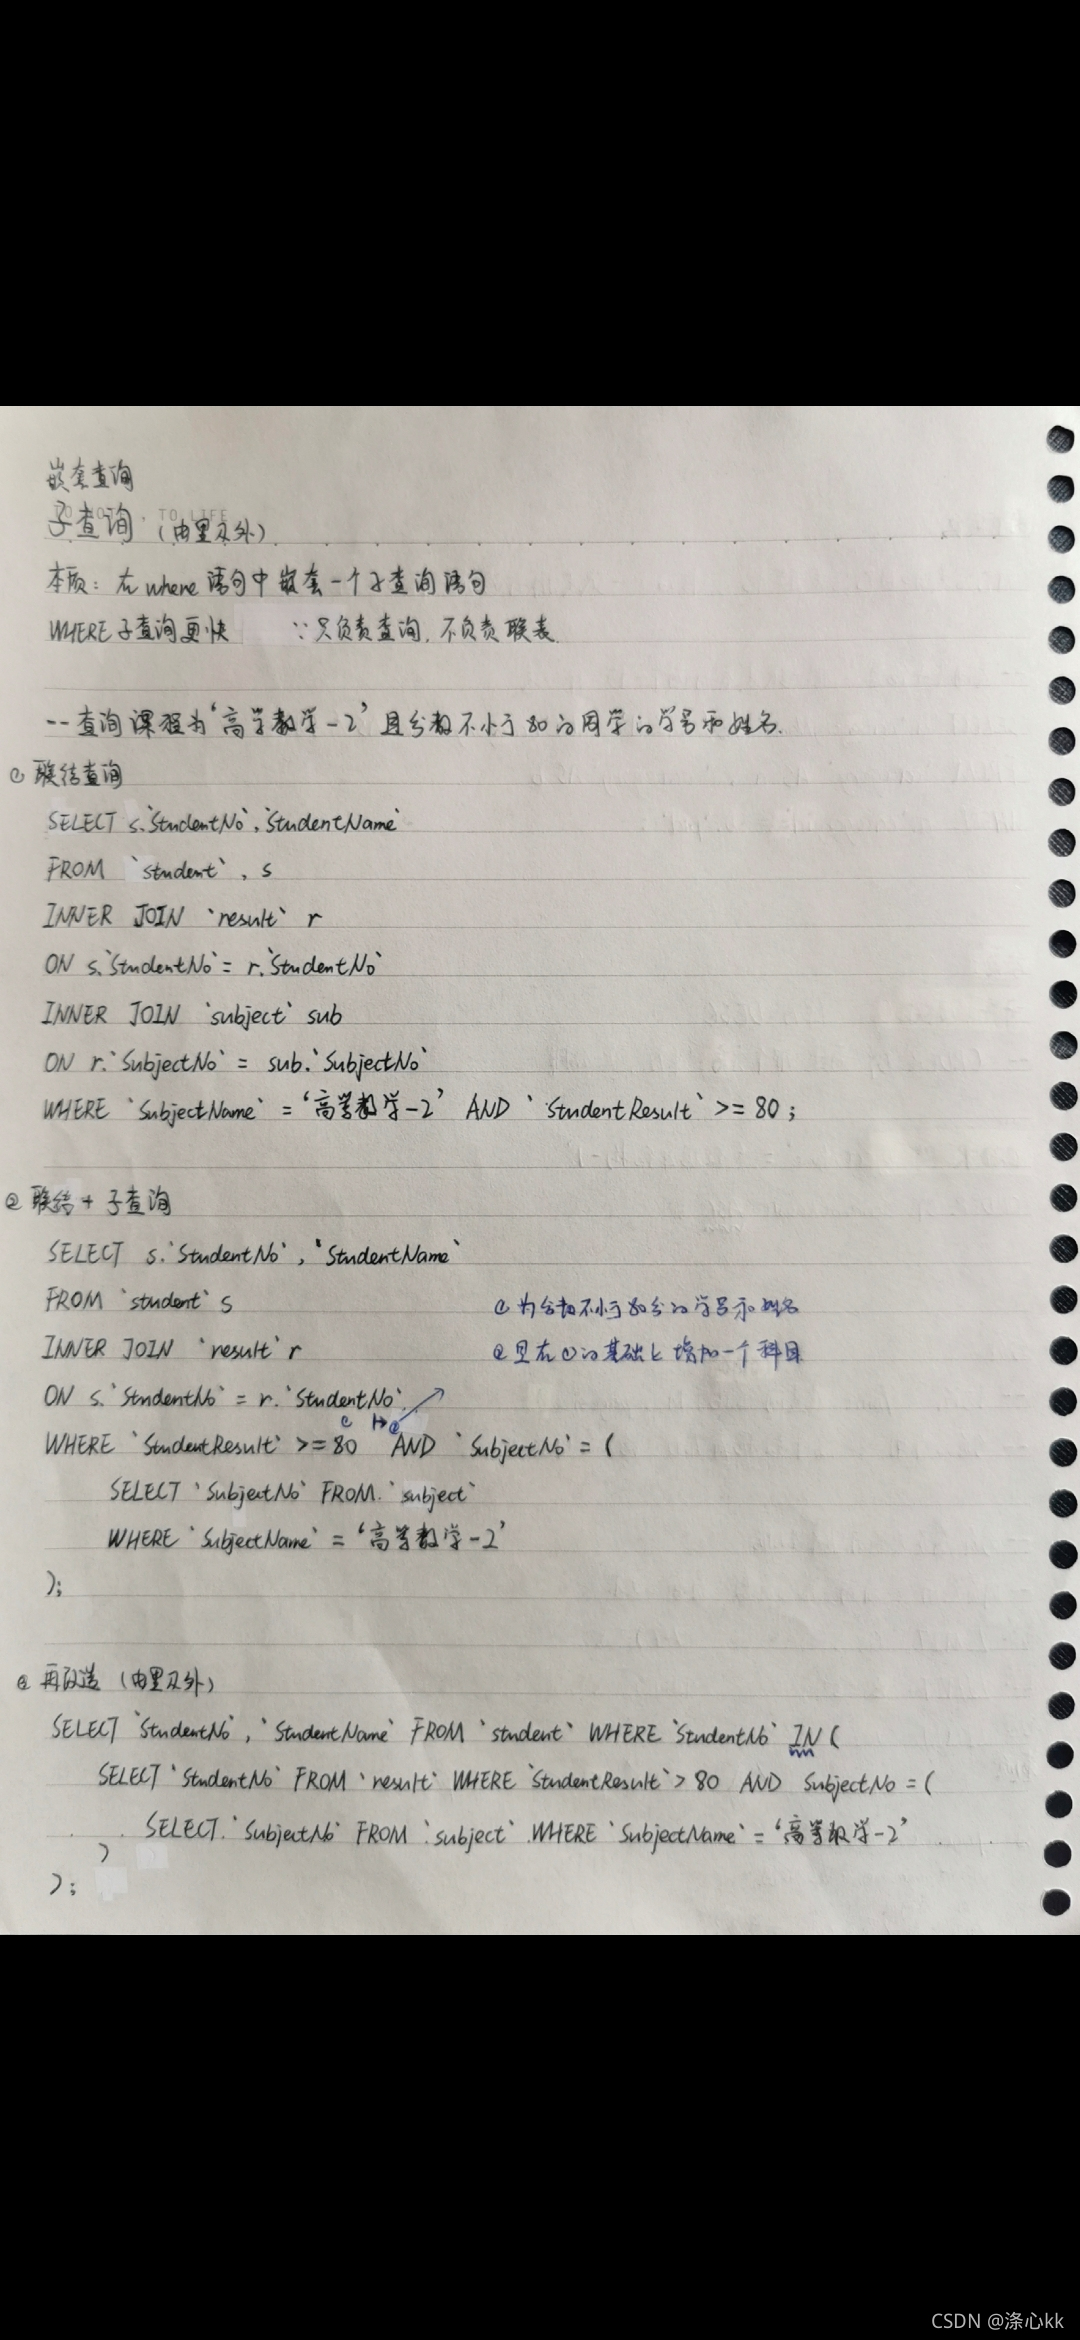 嵌套查询
子查询（由里及外）
本质：在where语句中嵌套一个子查询语句
WHERE子查询更快 ∵只负责查询，不负责联表.
--查询课程为‘高等数学-2’且分数不小于80的同学的学号和姓名.
① 联结查询
SELECT s.`StudentNo`,`StudentName`
FROM `student`, s
INNER JOIN `result` r
ON s.`StudentNo` = r.`StudentNo`
INNER JOIN `subject` sub
ON r.`SubjectNo` = sub.`SubjectNo`
WHERE `SubjectName` = ‘高等数学-2’ AND `StudentResult` >= 80 ;
② 联结 + 子查询
SELECT s.`StudentNo`, `StudentName`
FROM `student` s
① 为分数不小于80分的学号和姓名
INNER JOIN `result` r
② 是在①的基础上增加一个科目
ON s.`StudentNo` = r.`StudentNo`
① ②
WHERE `StudentResult` >= 80 AND `SubjectNo` = (
SELECT `SubjectNo` FROM `subject`
WHERE `SubjectName` = ‘高等数学-2’
);
再改造（由里及外）
SELECT `StudentNo`, `StudentName` FROM `student` WHERE `StudentNo` IN (
SELECT `StudentNo` FROM `result` WHERE `StudentResult` > 80 AND SubjectNo = (
SELECT `SubjectNo` FROM `subject` WHERE `SubjectName` = ‘高等数学-2’
)
);
CSDN @涤心kk